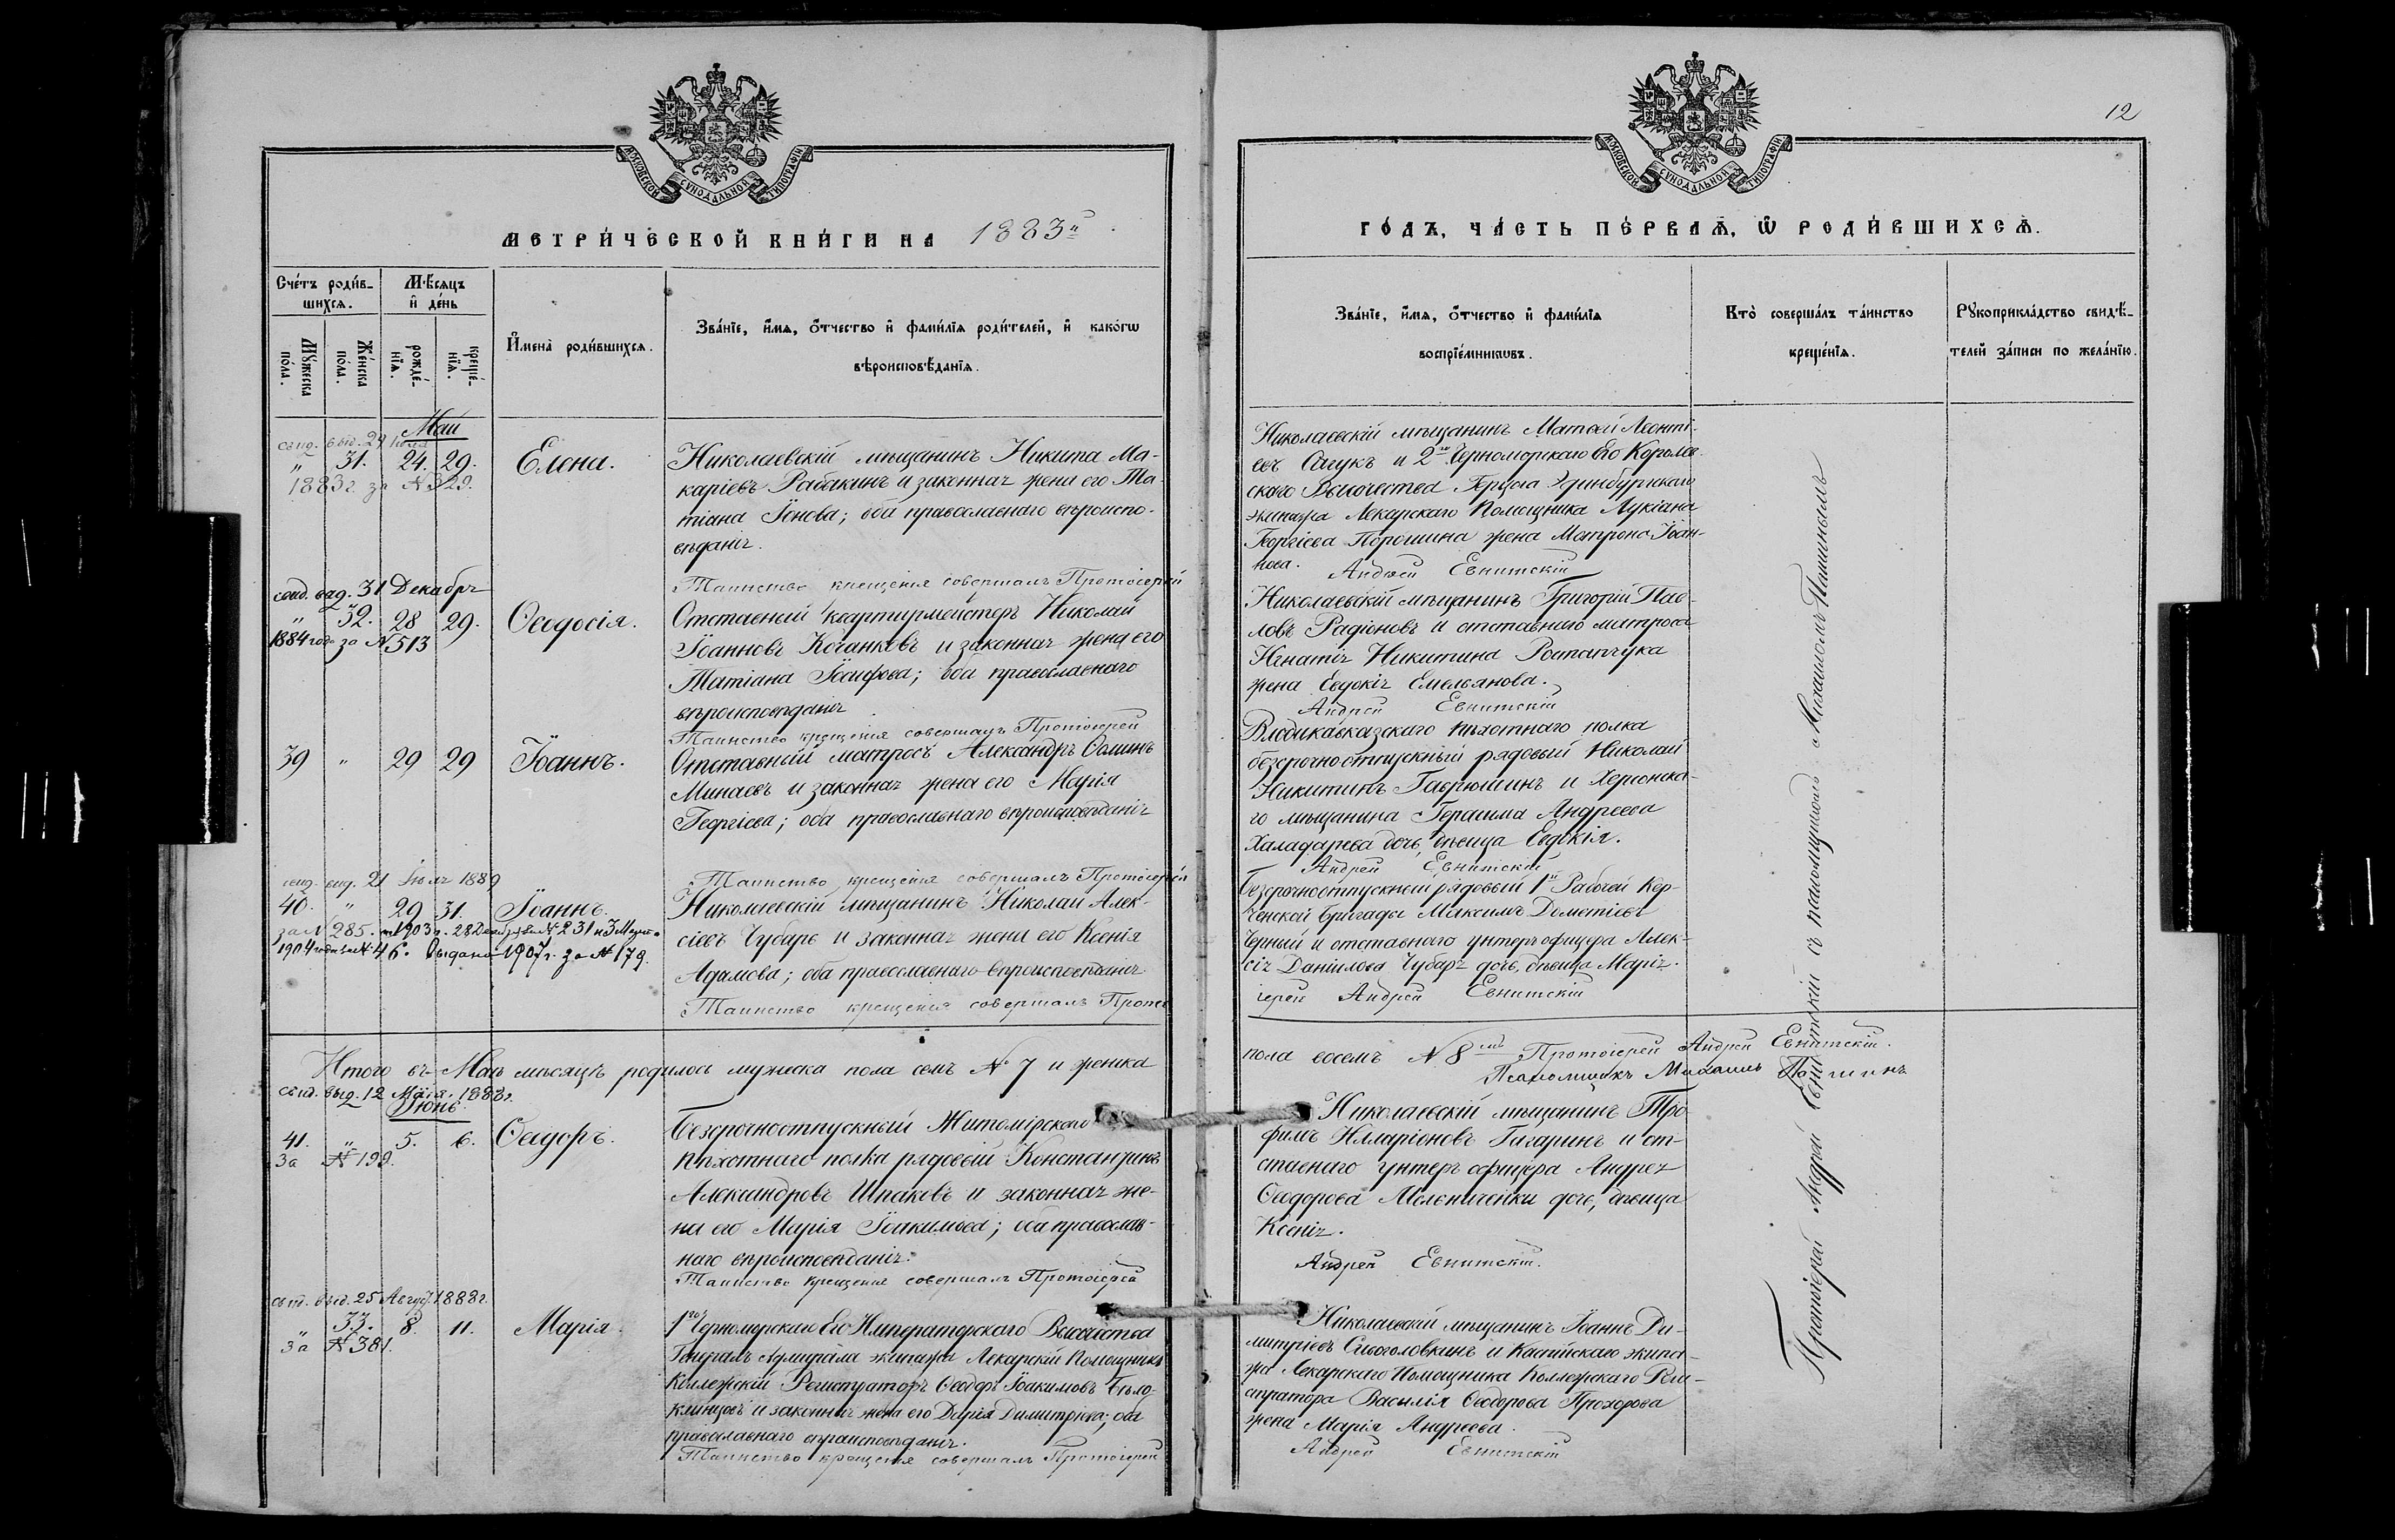 МОСКОВСКОЙ СѴНОДАЛЬНОЙ ТИПОГРАФІИ
МЕТРИ́ЧЕСКОЙ КНИ́ГИ НА 1883й
Сче́тъ роди́в-
шихсѧ.
Мѣсяцъ
и҆ де́нь
Мꙋ́жеска
по́ла.
Же́нска
по́ла.
рожде́-
нїѧ.
креще́-
нїѧ.
И҆мена̀ роди́вшихсѧ.
Зва́нїе, и҆́мѧ, ѻ҆́тчество и҆ фами́лїѧ роди́телей, и҆ како́гѡ
вѣроисповѣ́данїѧ.
Май
свид. выд. 29 Іюля
„ 31. 24. 29. Елена.
1883г. за № 329.
Николаевскій мѣщанинъ Никита Ма-
каріевъ Рабакинъ и законная жена его Та-
тіана Іонова; оба православнаго вѣроиспо-
вѣданія.
Таинство крещенія совершалъ Протоіерей
свид. выд. 31 Декабря
„ 32. 28 29. Ѳеодосія.
1884 года за № 513
Отставный квартирмейстеръ Николай
Іоанновъ Кочанковъ и законная жена его
Татіана Іосифова; оба православнаго
вѣроисповѣданія
Таинство крещенія совершалъ Протоіерей
39 „ 29 29 Іоаннъ.
Отставный матросъ Александръ Ѳоминъ
Минаевъ и законная жена его Марія
Георгіева; оба православнаго вѣроисповѣданія
Таинство крещенія совершалъ Протоіерей
свид. выд. 21 Іюля 1889
40. „ 29 31. Іоаннъ.
за № 285. 1903г. 28 Декабря за № 231 и 3 Марта
1904 года за № 46. Выдана 1907г. за № 179.
Николаевскій мѣщанинъ Николай Алек-
сіевъ Чубарь и законная жена его Ксенія
Адамова; оба православнаго вѣроисповѣданія
Таинство крещенія совершалъ Прото
Итого въ Маѣ мѣсяцѣ родилось мужеска пола семь № 7 и женска
свид. выд. 12 Мая. 1888г.
Іюнь.
41. „ 5. 6. Ѳеодоръ.
За № 199.
Безсрочноотпускный Житомірскаго
пѣхотнаго полка рядовый Константинъ
Александровъ Шпаковъ и законная же-
на его Марія Іоакимова; оба православ-
наго вѣроисповѣданія.
Таинство крещенія совершалъ Протоіерей
свид. выд. 25 Август. 1888г.
„ 33. 8. 11. Марія.
За № 381.
1го Черноморскаго Его Императорскаго Высочества
Генералъ Адмирала экипажа Лекарскій Помощникъ
Коллежскій Регистраторъ Ѳеодоръ Іоакимовъ Бѣло-
клинцовъ и законная жена его Дарія Димитріева; оба
православнаго вѣроисповѣданія.
Таинство крещенія совершалъ Протоіерей
12
МОСКОВСКОЙ СѴНОДАЛЬНОЙ ТИПОГРАФІИ
ГО́ДЪ, ЧА́СТЬ ПЕ́РВАѦ, Ѽ РОДИ́ВШИХСѦ.
Зва́нїе, и҆́мѧ, ѻ҆́тчество и҆ фами́лїѧ
воспрїе́мникѡвъ.
Кто̀ соверша́лъ та́инство
креще́нїѧ.
Рꙋкоприкла́дство свидѣ́-
телей за́писи по жела́нїю.
Николаевскій мѣщанинъ Матѳей Леонті-
евъ Сачукъ и 2го Черноморскаго Его Королев-
скаго Высочества Герцога Эдинбургскаго
экипажа Лекарскаго Помощника Лукіана
Георгіева Порошина жена Матрона Іоан-
нова.
Андрей Евнитскій
Николаевскій мѣщанинъ Григорій Пав-
ловъ Радіоновъ и отставнаго матроса
Игнатія Никитина Ропапчука
жена Евдокія Емельянова.
Андрей Евнитскій
Владикавказскаго пѣхотнаго полка
безсрочноотпускный рядовый Николай
Никитинъ Гаврюшинъ и Херсонска-
го мѣщанина Герасима Андреева
Халадарева дочь, дѣвица Евдокія.
Андрей Евнитскій
Безсрочноотпускный рядовый 1й Рабочей Кер-
ченской бригады Максимъ Дометіевъ
Черный и отставнаго унтеръ офицера Алек-
сія Даніилова Чубаря дочь, дѣвица Марія.
іерей Андрей Евнитскій
пола восемь № 8мь Протоіерей Андрей Евнитскій.
Псаломщикъ Михаилъ Пашинъ
Николаевскій мѣщанинъ Тро-
фимъ Илларіоновъ Гагаринъ и от-
ставнаго унтеръ офицера Андрея
Ѳеодорова Мельниченки дочь, дѣвица
Ксенія.
Андрей Евнитскій.
Николаевскій мѣщанинъ Іоаннъ Ди-
митріевъ Сивоголовкинъ и Каспійскаго экипа-
жа Лекарскаго Помощника Коллежскаго Реги-
стратора Василія Ѳеодорова Прохорова
жена Марія Андреева.
Андрей Евнитскій
Протоіерей Андрей Евнитскій съ псаломщикомъ Михаиломъ Пашинымъ